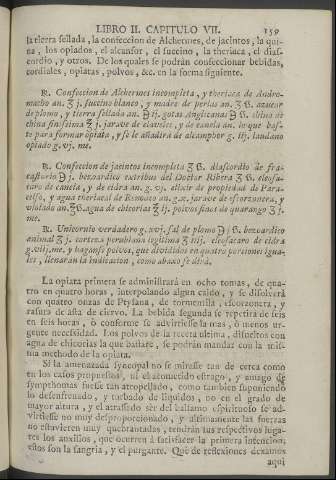 LIBRO II. CAPITULO VII. 159
la tierra sellada, la confeccion de Alchermes, de jacintos, la qui-
na, los opiados, el alcanfor, el succino, la theriaca, el dias-
cordio, y otros. De los quales se podrán confeccionar bebidas,
cordiales, opiatas, polvos, &c. en la forma siguiente.
℞. Confeccion de Alchermes incompleta, y theriaca de Andro-
macho an. ʒ j. succino blanco, y madre de perlas an. ʒ ß. azucar
de plomo, y tierra sellada an. ℈ ij. gotas Anglicanas ℈ ß. china de
china finissima ℥ j. jarave de claveles, y de canela an. lo que bas-
te para formar opiata, y se le añadirá de alcamphor g. iij. laudano
opiado g. vj. me.
℞. Confeccion de jacintos incompleta ʒ ß. diascordio de fra-
castorio ℈ j. bezoardico extribus del Doctor Ribera ʒ ß. eleosa-
caro de canela, y de cidra an. g. vj. elixir de propiedad de Para-
celso, y agua theriacal de Renodeo an. g. x. jarave de escorzonera, y
violado an. ℥ ß. agua de chicorias ℥ ij. polvos finos de quarango ʒ j.
me.
℞. Unicornio verdadero g. xvj. sal de plomo ℈ j ß. bezoardico
animal ʒ j. corteza peruviana legitima ʒ iij. eleosacaro de cidra
g. viij. me. y haganse polvos, que divididos en quatro porciones igua-
les, llenaran la indicacion, como abaxo se dirá.
La opiata primera se administrará en ocho tomas, de qua-
tro en quatro horas, interpolando algun caldo, y se disolverá
con quatro onzas de Ptysana, de tormentila, escorzonera, y
rasura de asta de ciervo. La bebida segunda se repetirá de seis
en seis horas, ò conforme se advirtiesse la mas, ò menos ur-
gente necessidad. Los polvos de la receta ultima, disueltos con
agua de chicorias la que bastare, se podrán mandar con la mis-
ma methodo de la opiata.
Si la amenazada syncopal no se mirasse tan de cerca como
en los casos propuestos, ni el conocido estrago, y amago de
symphtomas fuesse tan atropellado, como tambien suponiendo
lo desenfrenado, y turbado de liquidos, no en el grado de
mayor altura, y el atrassado ser del balsamo espirituoso se ad-
virtiesse no muy desproporcionado, y ultimamente las fuerzas
no estuvieren muy quebrantadas, tendrán sus respectivos luga-
res los auxilios, que ocurren à satisfacer la primera intencion;
estos son la sangria, y el purgante. Qué de reflexiones dexamos
aqui